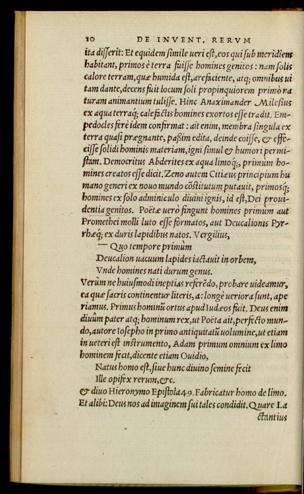 10 DE INVENT. RERVM
ita disserit: Et equidem simile ueri est, eos qui sub meridiem
habitant, primos è terra fuisse homines genitos: nam solis
calore terram, quæ humida est, arefaciente, atq; omnibus ui
tam dante, decens fuit locum soli propinquiorem primò na
turam animantium tulisse. Hinc Anaximander Milesius
ex aqua terraq; calefactis homines exortos esse tradit. Em-
pedocles ferè idem confirmat: ait enim, membra singula ex
terra quasi prægnante, passim edita, deinde coisse, & effe-
cisse solidi hominis materiam, igni simul & humori permi-
stam. Democritus Abderites ex aqua limoq;, primum ho-
mines creatos esse dicit. Zeno autem Citieus principium hu
mano generi ex nouo mundo cõstitutum putauit, primosq;
homines ex solo adminiculo diuini ignis, id est, Dei proui-
dentia genitos. Poëtæ uerò fingunt homines primum aut
Promethei molli luto esse formatos, aut Deucalionis Pyr-
rhæq; ex duris lapidibus natos. Vergilius,
— Quo tempore primùm
Deucalion uacuum lapides iactauit in orbem,
Vnde homines nati durum genus.
Verùm ne huiusmodi ineptias referẽdo, probare uideamur,
ea quæ sacris continentur literis, a: longè ueriora sunt, ape
riamus. Primus hominũ ortus apud Iudæos fuit. Deus enim
diuûm pater atq; hominum rex, ut Poëta ait, perfecto mun-
do, autore Iosepho in primo antiquitatũ uolumine, ut etiam
in ueteri est instrumento, Adam primum omnium ex limo
hominem fecit, dicente etiam Ouidio,
Natus homo est, siue hunc diuino semine fecit
Ille opifex rerum, &c.
& diuo Hieronymo Epistola 49. Fabricatur homo de limo.
Et alibi: Deus nos ad imaginem sui tales condidit. Quare La
ctantius